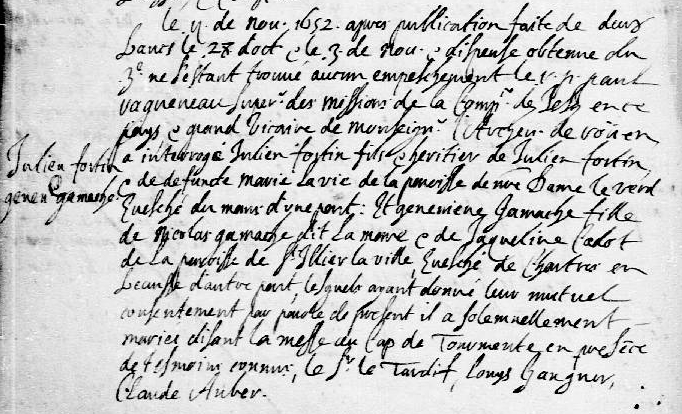 le 11 de nov. 1652. apres publication faite de deux
bancs le 28 d'oct e le 3 de nov. e dispense obtenue du
3e ne s'estant trouvé aucun empeschement le r. p. paul
ragueneau super. des missions de la Comp. de Jesus en ce
pays e grand vicaire de monseign. l'Archev. de röuen
Julien fortin
a interrogé Julien fortin fils e heritier de Julien fortin
genev. gamache
e de defuncte marie la vie de la paroisse de nre Dame le verd
Evesché du mans d'une part. Et genevieve Gamache fille
de nicolas gamache dit la marre e de Jaqueline Cadot
de la paroisse de St Illier la ville, Evesché de Chartres en
beausse d'autre part, lesquels ayant donné leur mutuel
consentement par parole de present il a solemnellement
mariés disant la messe au Cap de Tourmente en presēce
de tesmoins connus, le Sr. le Tardif, louys gangner,
Claude Auber.